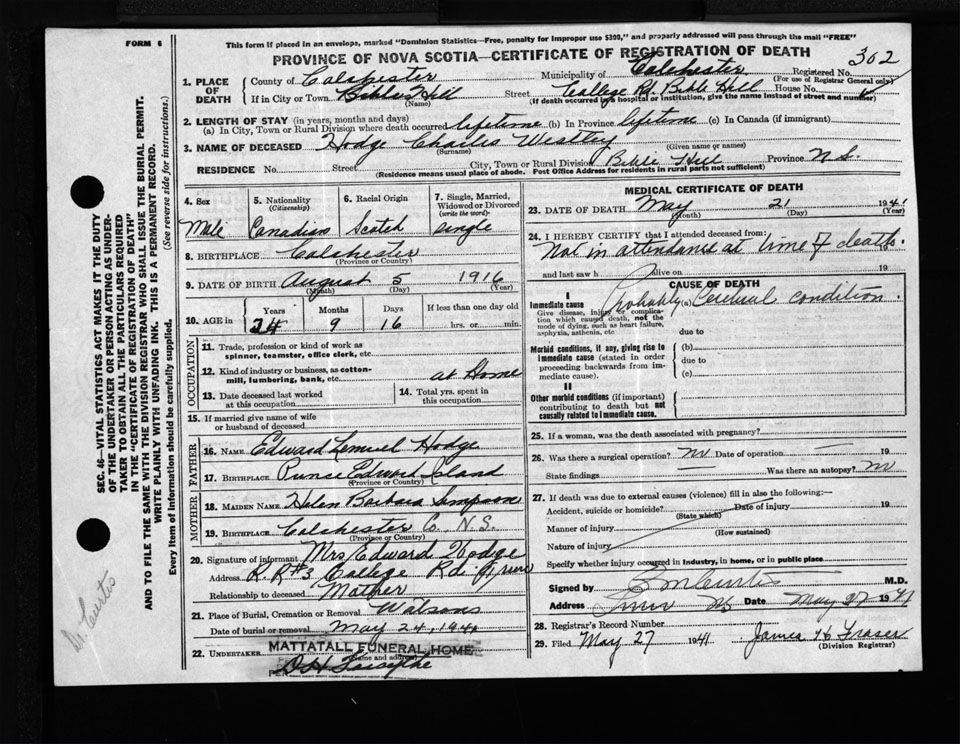 This form if placed in an envelope, marked "Dominion Statistics—Free, penalty for improper use $300," and properly addressed will pass through the mail "FREE"
FORM 6
PROVINCE OF NOVA SCOTIA—CERTIFICATE OF REGISTRATION OF DEATH
302
1. PLACE OF DEATH
County of Colchester Municipality of Colchester Registered No.
(For use of Registrar General only)
If in City or Town Bible Hill Street College Rd. Bible Hill House No.
(Name) (If death occurred in a hospital or institution, give the name instead of street and number)
2. LENGTH OF STAY (in years, months and days)
(a) In City, Town or Rural Division where death occurred lifetime (b) In Province lifetime (c) In Canada (if immigrant)
3. NAME OF DECEASED Hodge Charles Westley
(Surname) (Given name or names)
RESIDENCE No. Street City, Town or Rural Division Bible Hill Province N.S.
(Residence means usual place of abode. Post Office Address for residents in rural parts not sufficient)
4. Sex
Male
5. Nationality (Citizenship)
Canadian
6. Racial Origin
Scotch
7. Single, Married, Widowed or Divorced (write the word)
Single
8. BIRTHPLACE Colchester
(Province or Country)
9. DATE OF BIRTH August 5 1916
(Month) (Day) (Year)
10. AGE in Years Months Days If less than one day old
24 9 16 hrs. or min.
OCCUPATION
11. Trade, profession or kind of work as spinner, teamster, office clerk, etc.
12. Kind of industry or business, as cotton-mill, lumbering, bank, etc. at Home
13. Date deceased last worked at this occupation
14. Total yrs. spent in this occupation
15. If married give name of wife or husband of deceased
FATHER
16. NAME Edward Lemuel Hodge
17. BIRTHPLACE Prince Edward Island
(Province or Country)
MOTHER
18. MAIDEN NAME Helen Barbara Simpson
19. BIRTHPLACE Colchester Co. N.S.
(Province or Country)
20. Signature of informant Mrs Edward Hodge
Address R.R#3 College Rd. Truro
Relationship to deceased Mother
21. Place of Burial, Cremation or Removal Watsons
Date of burial or removal May 24, 1941
22. UNDERTAKER MATTATALL FUNERAL HOME
(Name and address)
MEDICAL CERTIFICATE OF DEATH
23. DATE OF DEATH May 21 1941
(Month) (Day) (Year)
24. I HEREBY CERTIFY that I attended deceased from:
Not in attendance at time of death.
19
and last saw h alive on 19
CAUSE OF DEATH
I
Immediate cause Probably (a) Cerebral condition.
Give disease, injury or complication which caused death, not the mode of dying, such as heart failure, asphyxia, asthenia, etc
due to
Morbid conditions, if any, giving rise to immediate cause (stated in order proceeding backwards from immediate cause).
(b)
due to
(c)
II
Other morbid conditions (if important) contributing to death but not causally related to immediate cause.
25. If a woman, was the death associated with pregnancy?
26. Was there a surgical operation? no Date of operation 19
State findings Was there an autopsy? no
27. If death was due to external causes (violence) fill in also the following:—
Accident, suicide or homicide? Date of injury 19
(State which)
Manner of injury
(How sustained)
Nature of injury
Specify whether injury occurred in industry, in home, or in public place
Signed by Curtis M.D.
Address Truro NS Date May 27 1941
28. Registrar's Record Number
29. Filed May 27 1941 James H. Fraser
(Division Registrar)
SEC. 46—VITAL STATISTICS ACT MAKES IT THE DUTY
OF THE UNDERTAKER OR PERSON ACTING AS UNDERTAKER TO OBTAIN ALL THE PARTICULARS REQUIRED
IN THE "CERTIFICATE OF REGISTRATION OF DEATH"
AND TO FILE THE SAME WITH THE DIVISION REGISTRAR WHO SHALL ISSUE THE BURIAL PERMIT.
WRITE PLAINLY WITH UNFADING INK. THIS IS A PERMANENT RECORD.
Every item of information should be carefully supplied. (See reverse side for instructions.)
Dr. Curtis